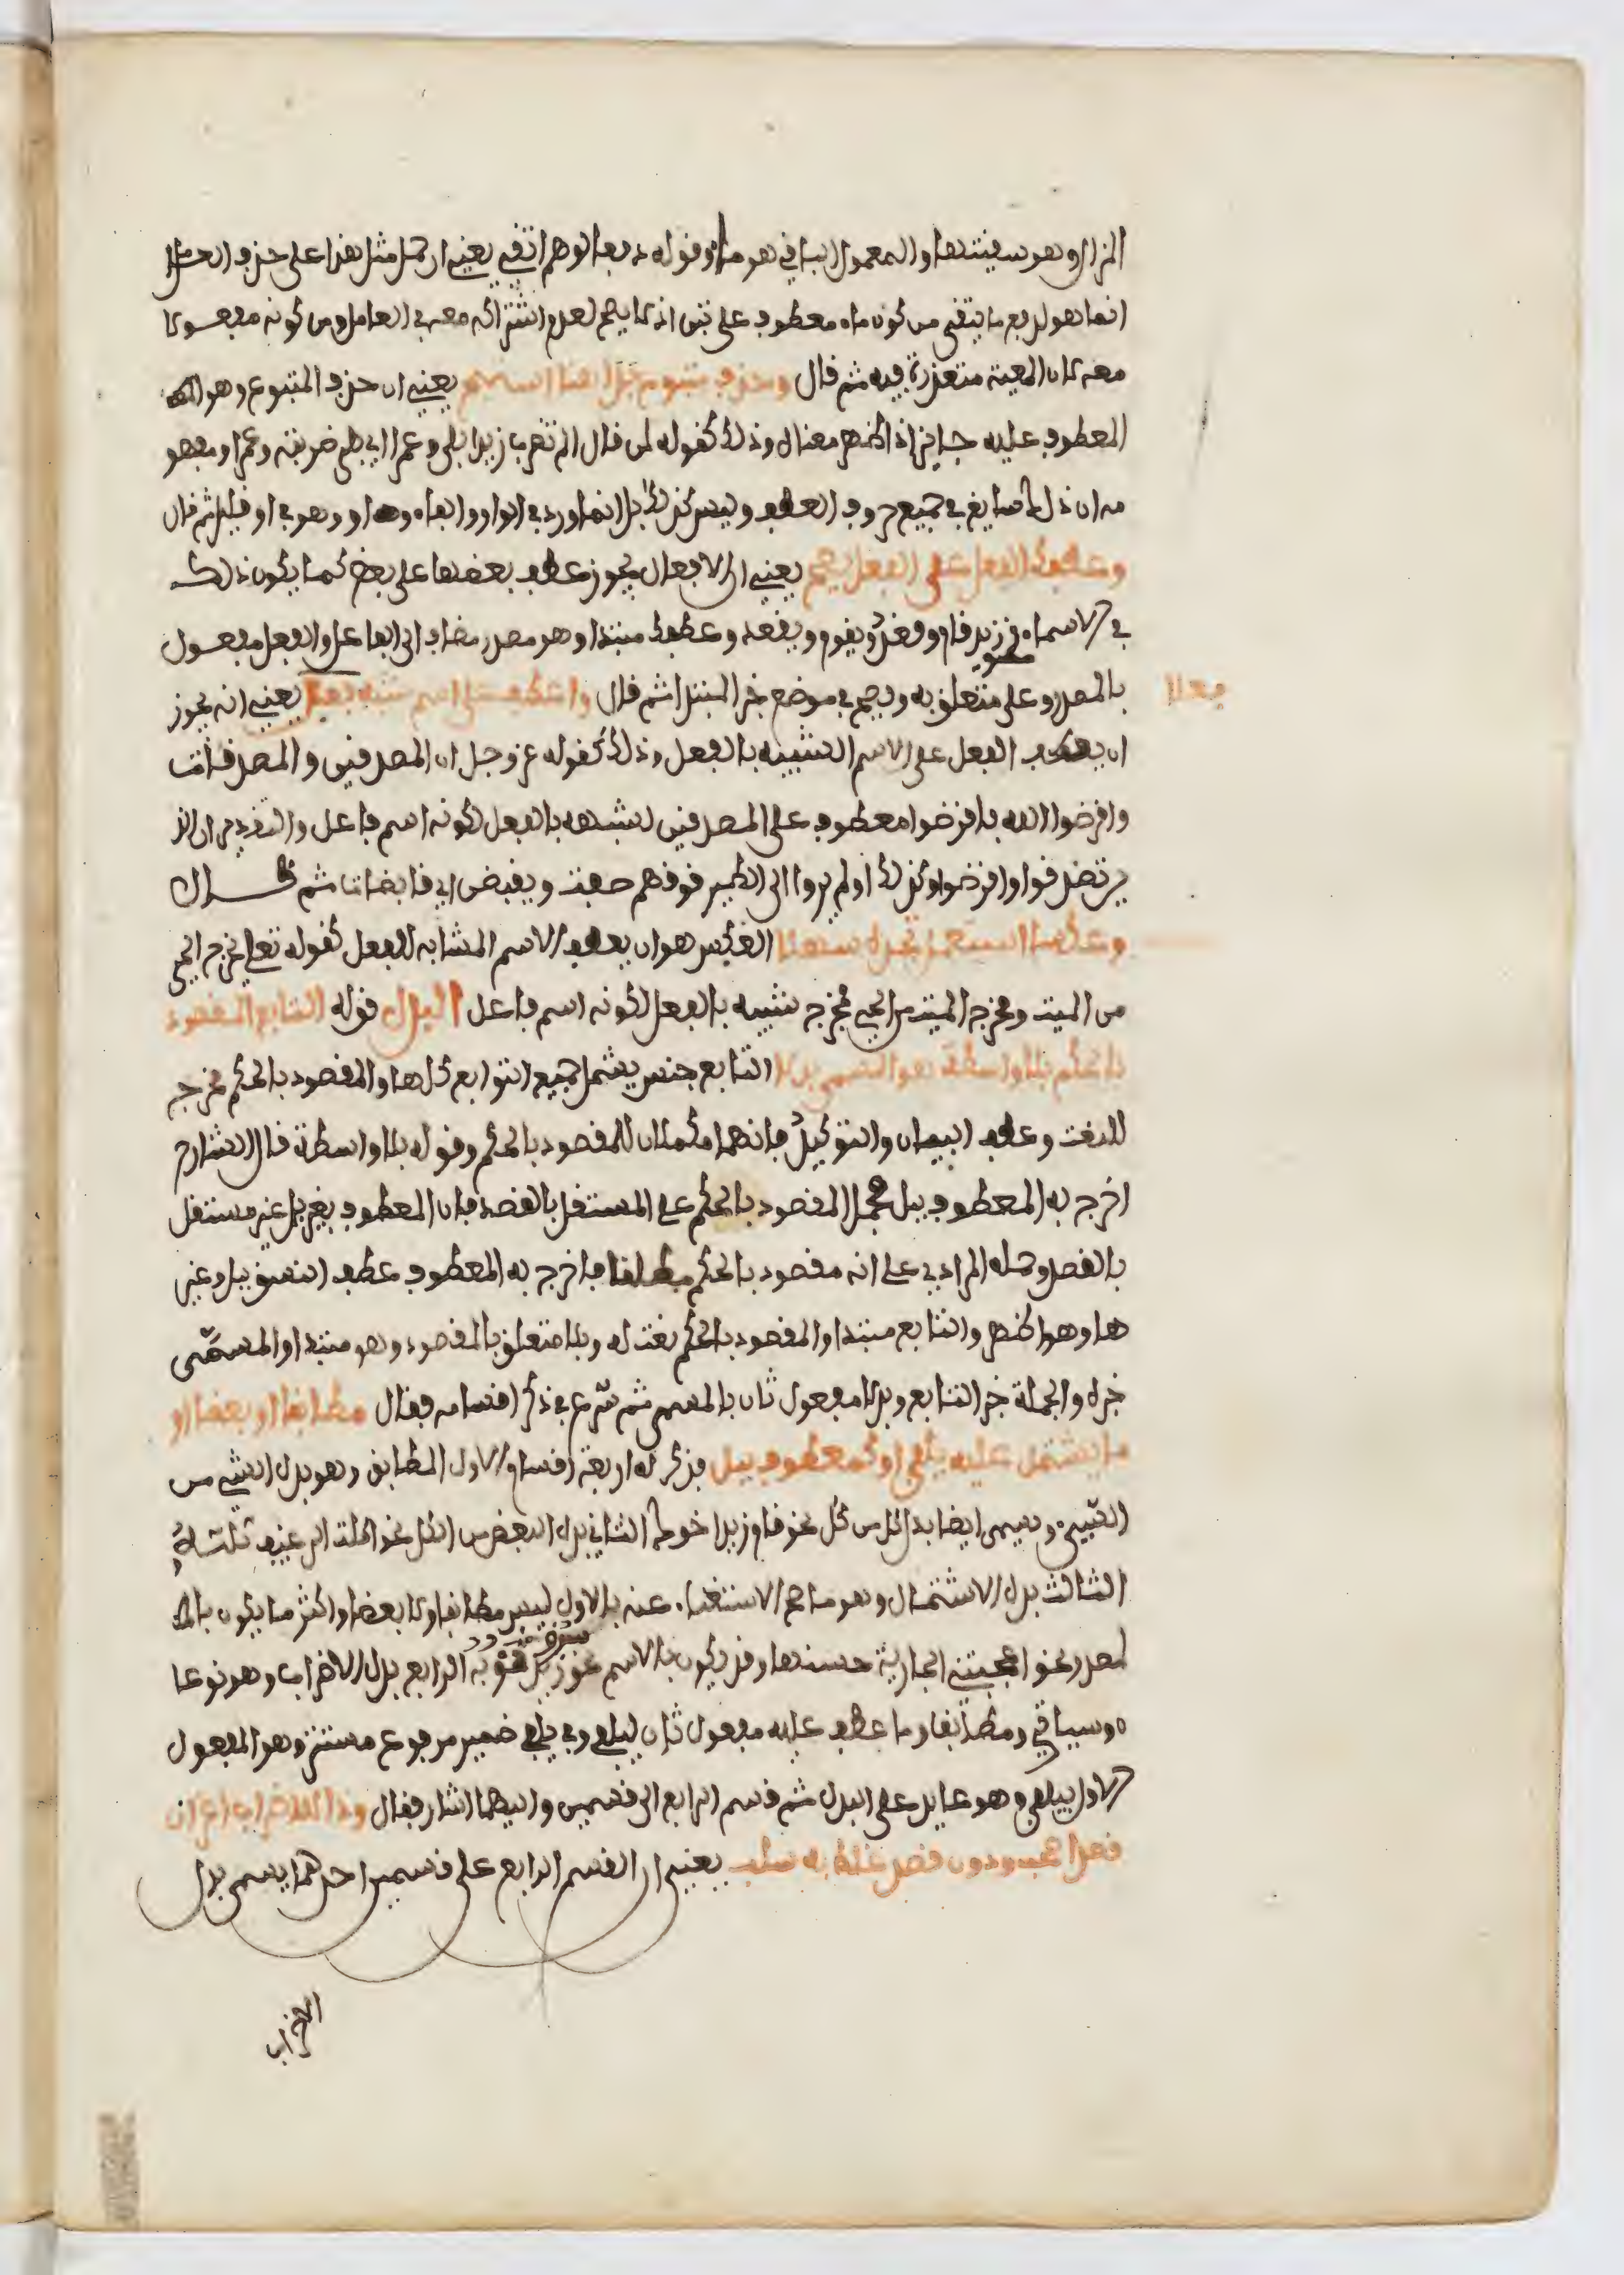 المزال وهو سقيتها والمعمول الباقي هو ماء وقوله دفعا لوهم اتقي يعني ان حمل مثل هذا على حذف العامل
انما هو لدفع ما يتقى من كون ماء معطوف على تبن اذ لا يصح لعدم اشتراكه معه في العامل ومن كونه مفعولا
معه لان المعية متعذرة فيه ثم قال وحذف متبوع بدا هنا استبح يعني ان حذف المتبوع وهو
المعطوف عليه جايز اذا ظهر معناه وذلك كقوله لمن قال الم تضرب زيدا بلى وعمرا اي بلى ضربته وعمرا ومفهو
مه ان ذلك سايغ في جميع حروف العطف وليس كذلك بل انما ورد في الواو والفاء وهاو وهو في او قليل ثم قال
وعطفك الفعل على الفعل يصح يعني ان الافعال يجوز عطف بعضها على بعض كما يكون ذلك
في الاسماء نحو زيد قام وقعد ويقوم ويقعد وعطفك مبتدا وهو مصدر مضاف الى الفاعل والفعل مفعول
بالمصدر وعلى متعلق به ويصح في موضع خبر المبتدا ثم قال واعطف على اسم شبه فعل يعني انه يجوز
فعلا
ان يعطف الفعل على الاسم الشبيه بالفعل وذلك كقوله عز وجل ان المصدقين والمصدقات
واقرضوا الله فاقرضوا معطوف على المصدقين لشبهه بالفعل لكونه اسم فاعل والتقدير ان الذ
ين تصدقوا واقرضوا وكذلك اولم يروا الى الطير فوقهم صفت ويقبضن اي قابضات ثم قال
وعكسا استعمل تجده سهلا العكس هو ان يعطف الاسم المشابه للفعل كقوله تعلى يخرج الحي
من الميت ومخرج الميت من الحي فمخرج شبيه بالفعل لكونه اسم فاعل البدل قوله التابع المقصود
بالحكم بلا واسطة هو المسمى بدلا التابع جنس يشمل جميع التوابع كلها والمقصود بالحكم مخرج
للنعت وعطف البيان والتوكيد فانهما مكملان للمقصود بالحكم وقوله بلا واسطة قال الشارح
اخرج به المعطوف ببل فحمل المقصود بالحكم على المستقل بالقصد فان المعطوف بغير بل غير مستقل
بالقصد وحمله المرادي على انه مقصود بالحكم مطلقا فاخرج به المعطوف عطف النسق ببل وغير
ها وهو اظهر والتابع مبتدا والمقصود بالحكم نعت له وبلا متعلق بالمقصود وهو مبتدا والمسمى
خبره والجملة خبر التابع وبدلا مفعول ثان بالمسمى ثم شرع في ذكر اقسامه فقال مطابقا او بعضا او
ما يشتمل عليه يلفى او كمعطوف ببل فذكر له اربعة اقسام الاول المطابق وهو بدل الشي من
الشيء ويسمى ايضا بدل كل من كل نحو قام زيد اخوك الثاني بدل البعض من الكل نحو اكلت الرغيف ثلثه
الثالث بدل الاشتمال وهو ما صح الاستغناء عنه بالاول ليس مطابقا ولا بعضا واكثر ما يكون بالم
لمصدر نحو اعجبتني الجارية حسنها وقد يكون بالاسم نحو سرق زيد ثوبه الرابع بدل الاضراب وهو نوعا
ن وسياتي ومطابقا وما عطف عليه مفعول ثان ليلفى وفي يلفى ضمير مرفوع مستتر وهو المفعول
الاول بيلفى وهو عايد على البدل ثم قسم الرابع الى قسمين واليهما اشار فقال وذا للاضراب اعز ان
قصدا صحب ودون قصد غلط به سلب يعني ان القسم الرابع على قسمين احدهما يسمى بدل
الاضراب